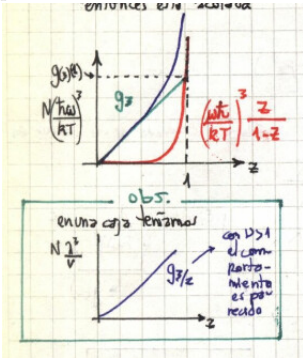 entonces
g₃(1)
N(ħω/kT)³
g₃
(ωħ/kT)³ z/1-z
1
z
obs.
en una caja teníamos
N λ³/V
g3/2
z
con D>1
el com-
porta-
miento
es pa-
recido